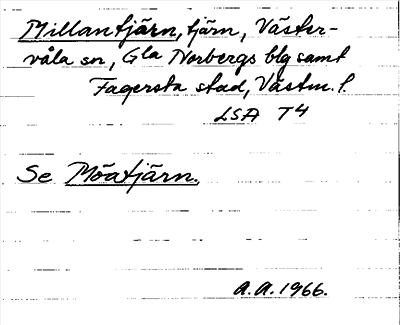 Millantjärn, tjärn, Väster-
våla sn, Gla Norbergs blg samt
Fagersta stad, Västm. l.
LSA T4
Se Möatjärn.
A.A. 1966.